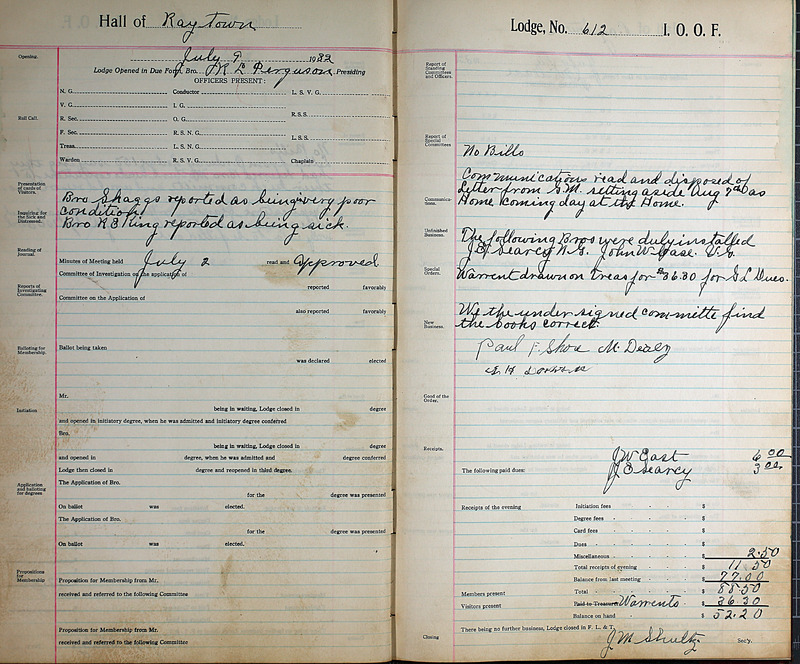 Hall of Raytown
Opening.
July 9 1932
Lodge Opened in Due Form, Bro. R L Ferguson Presiding
OFFICERS PRESENT:
Roll Call.
N. G. Conductor L. S. V. G.
V. G. I. G.
R. Sec. O. G. R.S.S.
F. Sec. R. S. N. G.
Treas. L. S. N. G. L.S.S.
Warden R. S. V. G. Chaplain
Presentation of cards of Visitors.
Bro Skaggs reported as being very poor
Inquiring for the Sick and Distressed.
condition.
Bro R E King reported as being sick.
Reading of Journal.
Minutes of Meeting held July 2 read and Approved
Committee of Investigation on the application of
Reports of Investigating Committee.
reported favorably
Committee on the Application of
also reported favorably
Balloting for Membership.
Ballot being taken
was declared elected
Mr.
Initiation
being in waiting, Lodge closed in degree
and opened in initiatory degree, when he was admitted and initiatory degree conferred
Bro.
being in waiting, Lodge closed in degree
and opened in degree, when he was admitted and degree conferred
Lodge then closed in degree and reopened in third degree.
Application and balloting for degrees
The Application of Bro.
for the degree was presented
On ballot was elected.
The Application of Bro.
for the degree was presented
On ballot was elected.
Propositions for Membership
Proposition for Membership from Mr.
received and referred to the following Committee
Proposition for Membership from Mr.
received and referred to the following Committee
Lodge, No. 612 I. O. O. F.
Report of Standing Committees and Officers.
Report of Special Committees
No Bills
Communications.
Communications read and disposed of
Letter from G.M. setting aside Aug as
Home coming day at the Home.
Unfinished Business.
The following Bros were duly installed
J E Searcy N.G. John W Gase. V.G.
Special Orders.
Warrent drawn on treas for $36.30 for G L Dues.
New Business.
We the under signed committe find
the books correct.
Paul F. Shoa M. Dealy
Good of the Order.
Receipts.
J W East 6 00
The following paid dues: J E Searcy 3 00
Receipts of the evening Initiation fees $
Degree fees $
Card fees $
Dues $
Miscellaneous $ 2.50
Total receipts of evening $ 11 50
Balance from last meeting $ 77.00
Members present Total $ 88.50
Visitors present Paid to Treasurer Warrents $ 36 30
Balance on hand $ 52.20
Closing
There being no further business, Lodge closed in F. L. & T.
J. M. Shultz Sec'y.